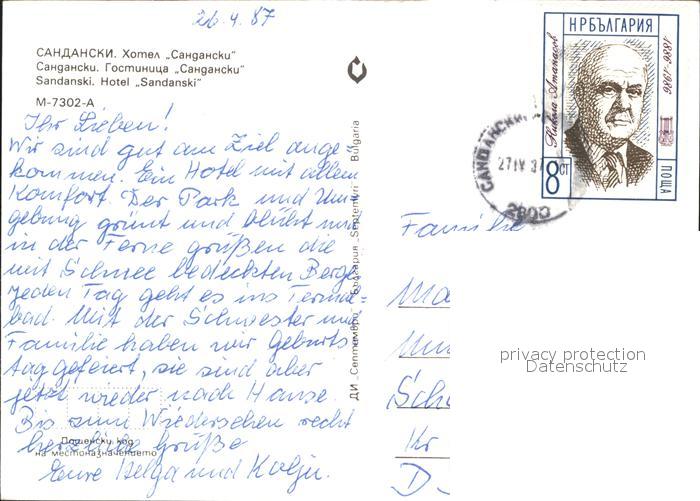 26.4.87
САНДАНСКИ. Хотел „Сандански"
Сандански. Гостиница „Сандански"
Sandanski. Hotel „Sandanski"
М-7302-А
Ihr Lieben!
Wir sind gut am Ziel ange-
kommen. Ein Hotel mit allem
Komfort. Der Park und Um-
gebung grünt und blüht nur
in der Ferne grüßen die
mit Schnee bedeckten Berge.
jeden Tag geht es ins Termal-
bad. Mit der Schwester und
Familie haben wir Geburts
tag gefeiert, sie sind aber
jetzt wieder nach Hause.
Bis zum Wiedersehen recht
herzliche Grüße
Eure Helga und Kolju.
Пощенски код
на местоназначението
ДИ „Септември" България „Septemvri" Bulgaria
НР БЪЛГАРИЯ
Никола Атанасов
1886-1986
8 СТ
ПОЩА
САНДАНСКИ
27 IV 87
2800
Familie
Schl
Kr
D-
privacy protection
Datenschutz